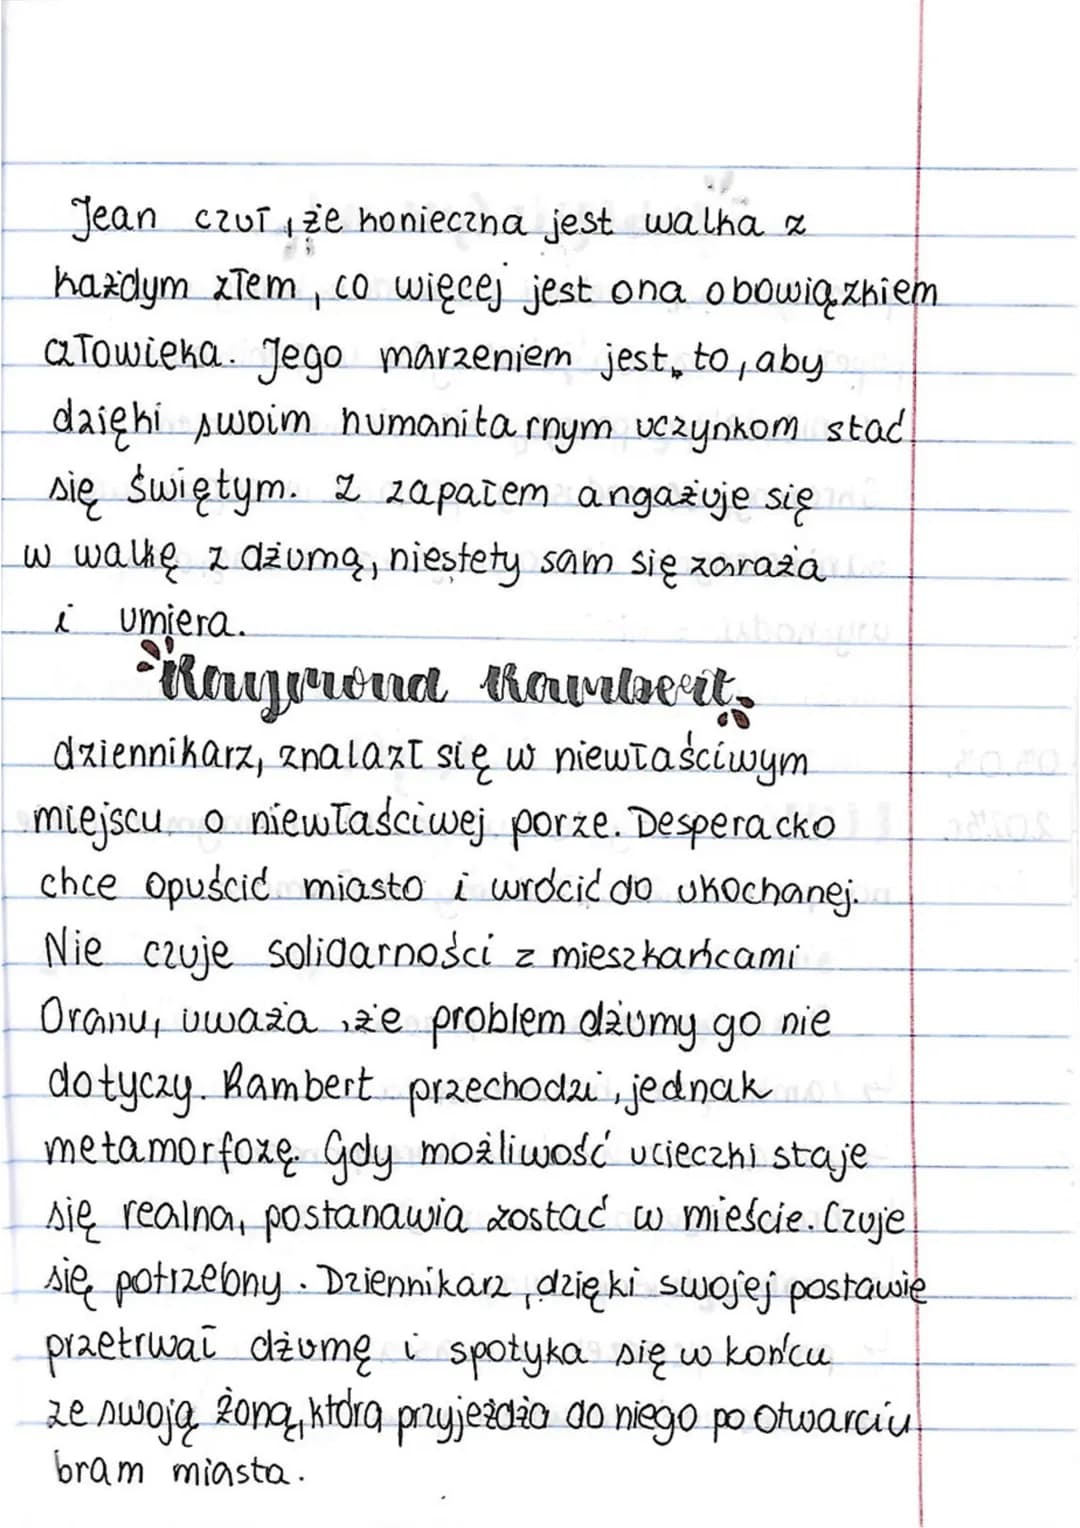 Jean czuł, że konieczna jest walka z
każdym złem, co więcej jest ona obowiązkiem
człowieka. Jego marzeniem jest to, aby
dzięki swoim humanitarnym uczynkom stać
się świętym. Z zapałem angażuje się
w walkę z dżumą, niestety sam się zaraża
i umiera.
Raymond Rambert
dziennikarz, znalazł się w niewłaściwym
miejscu o niewłaściwej porze. Desperacko
chce opuścić miasto i wrócić do ukochanej.
Nie czuje solidarności z mieszkańcami
Oranu, uważa, że problem dżumy go nie
dotyczy. Rambert przechodzi, jednak
metamorfozę. Gdy możliwość ucieczki staje
się realna, postanawia zostać w mieście. Czuje
się potrzebny. Dziennikarz, dzięki swojej postawię
przetrwał dżumę i spotyka się w końcu
ze swoją żoną, którą przyjeżdża do niego po otwarciu
bram miasta.